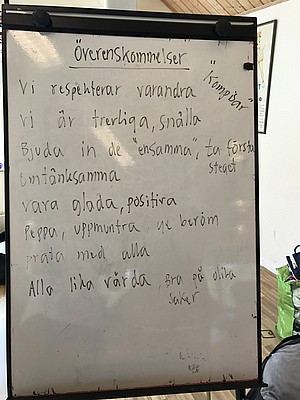 Överenskommelser
"Kompisar"
Vi respekterar varandra
Vi är trevliga, snälla
Bjuda in de "ensamma", ta första
steget
omtänksamma
vara glada, positiva
Peppa, uppmuntra, ge beröm
prata med alla
Alla lika värda, Bra på olika
saker